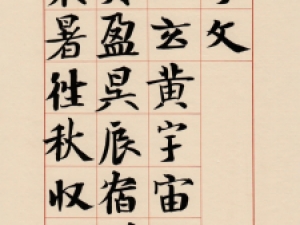 文
玄黄宇宙
盈昃辰宿
暑往秋收